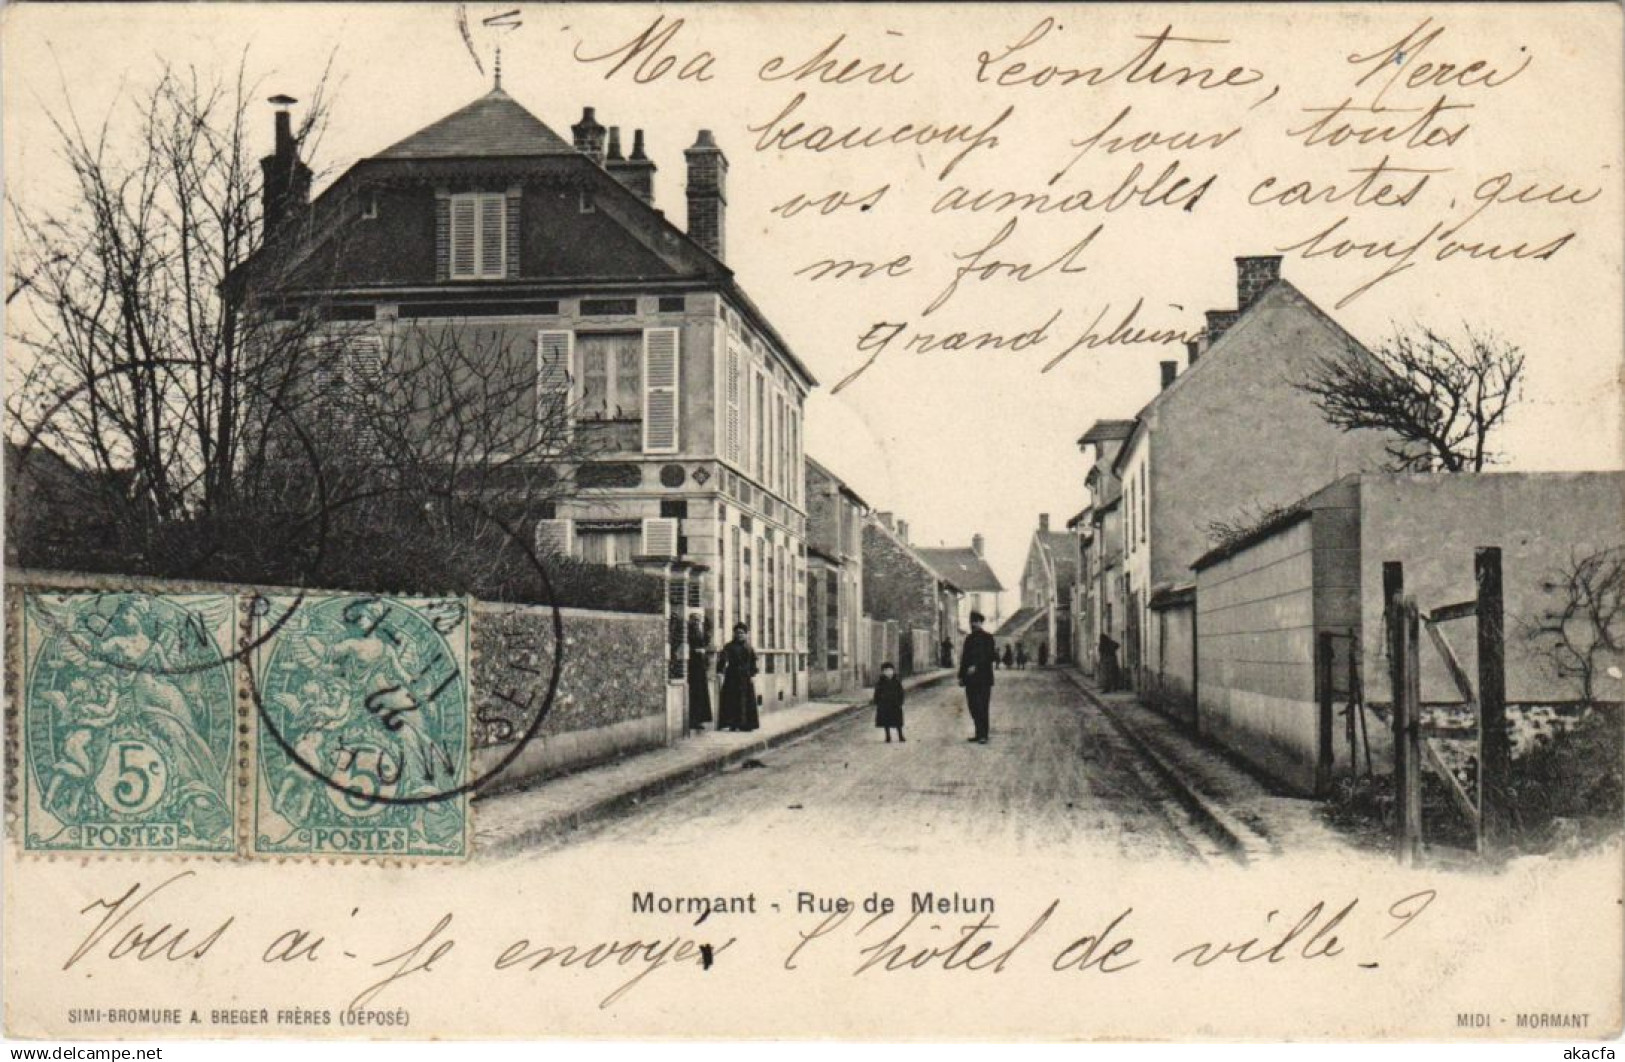 Ma chère Léontine, Merci
beaucoup pour toutes
vos aimables cartes, qui
me font toujours
grand plaisir
5c
POSTES
5c
POSTES
22
11-12
MOR
SEINE
Mormant - Rue de Melun
Vous ai-je envoyé l'hôtel de ville?
SIMI-BROMURE A. BREGER FRÈRES (DÉPOSÉ)
MIDI - MORMANT
akpool.co.uk
akacfa